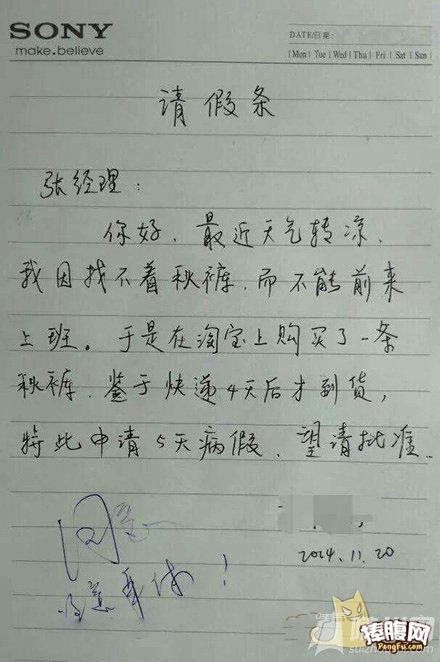 SONY
make.believe
DATE/日期:
Mon Tue Wed Thu Fri Sat Sun
请假条
张经理:
你好.最近天气转凉.
我因找不着秋裤.而不能前来
上班。于是在淘宝上购买了一条
秋裤.鉴于快递4天后才到货,
特此申请5天病假.望请批准.
同意
注意身体!
2014.11.20
捧腹网
PengFu.com